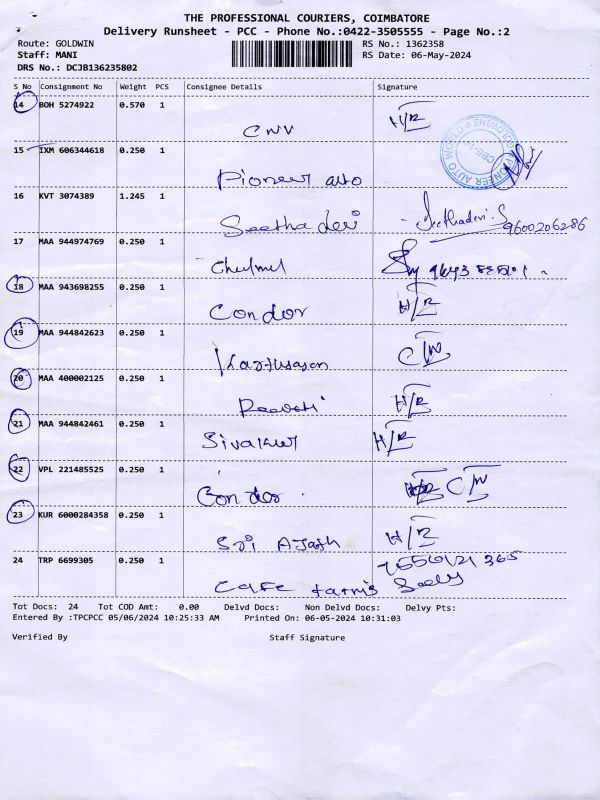 THE PROFESSIONAL COURIERS, COIMBATORE
Delivery Runsheet - PCC - Phone No.:0422-3505555 - Page No.:2
Route: GOLDWIN RS No.: 1362358
Staff: MANI RS Date: 06-May-2024
DRS No.: DCJB136235802
S No Consignment No Weight PCS Consignee Details Signature
14 BOH 5274922 0.570 1
CNV H/R
15 IXM 606344618 0.250 1
Pioneer auto PIONEER AUTO WORLD
16 KVT 3074389 1.245 1
Seetha devi Seethadevi.S 9600206286
17 MAA 944974769 0.250 1
18 MAA 943698255 0.250 1
Condor H/R
19 MAA 944842623 0.250 1
20 MAA 400002125 0.250 1
Revathi H/R
21 MAA 944842461 0.250 1
H/R
22 VPL 221485525 0.250 1
Condor
23 KUR 6000284358 0.250 1
Sri Ajath H/R
24 TRP 6699305 0.250 1
Cafe
Tot Docs: 24 Tot COD Amt: 0.00 Delvd Docs: Non Delvd Docs: Delvy Pts:
Entered By :TPCPCC 05/06/2024 10:25:33 AM Printed On: 06-05-2024 10:31:03
Verified By Staff Signature